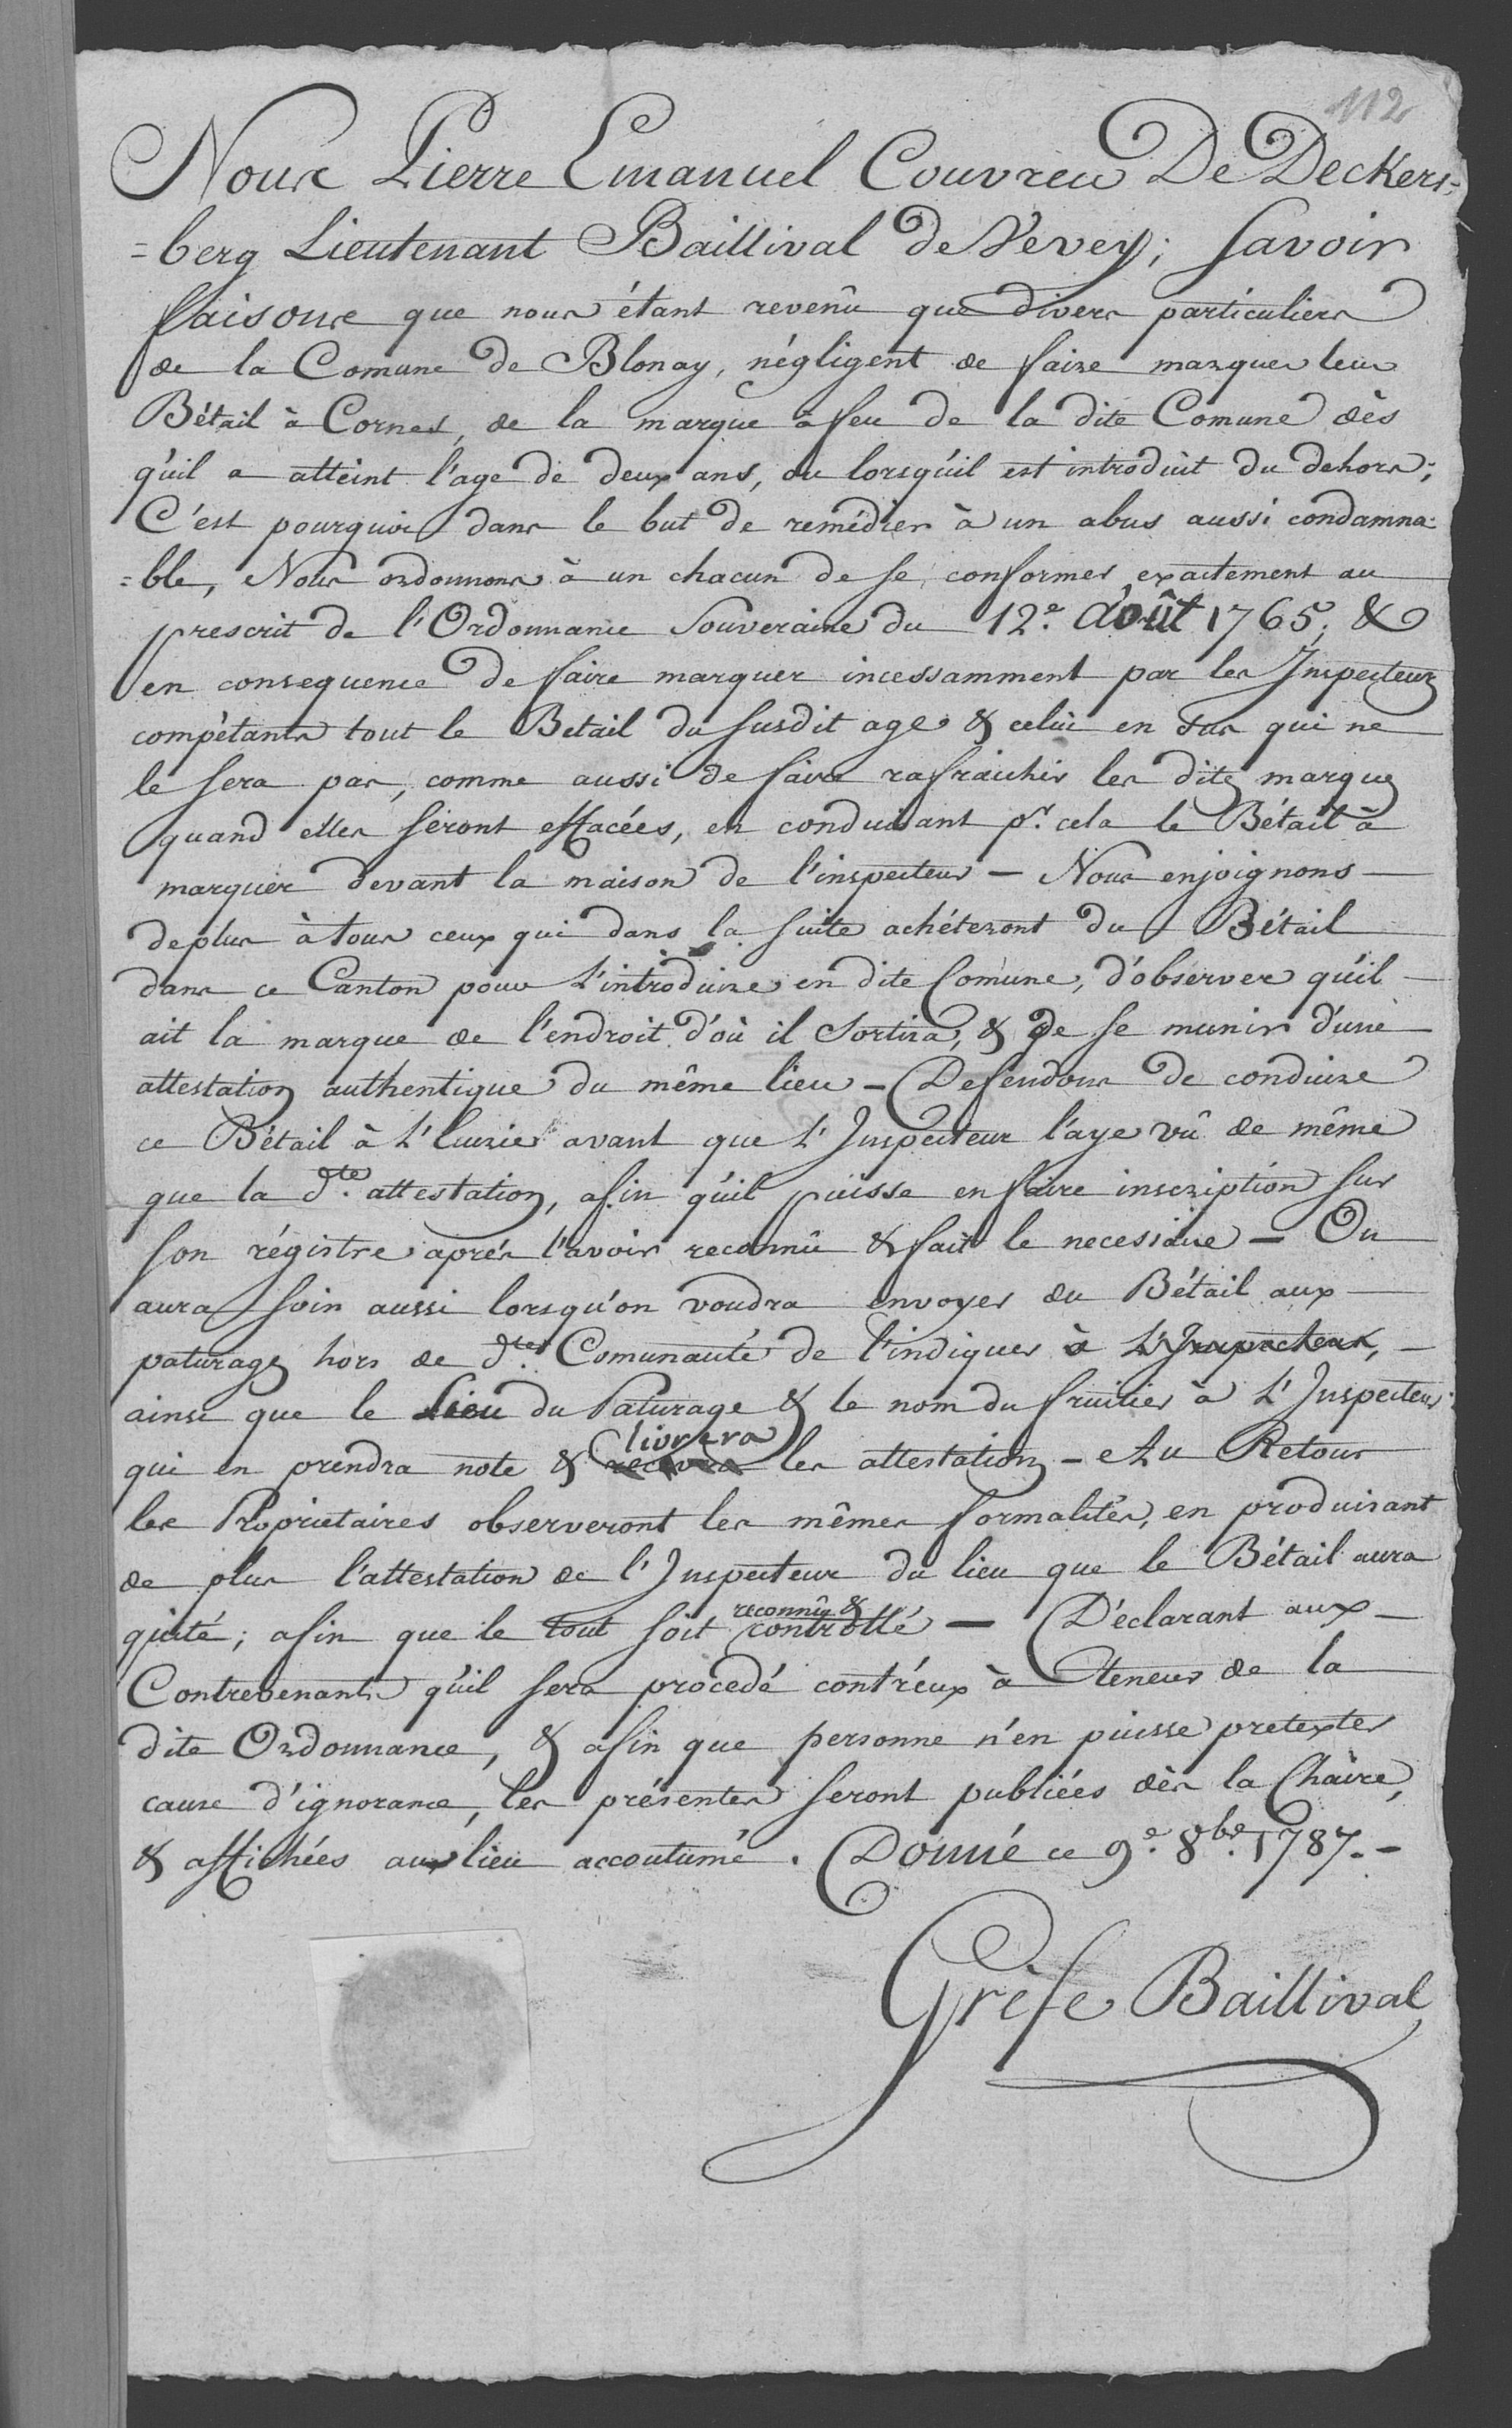 112
Nous Pierre Emanuel Couvreu De Deckers=
=berg Lieutenant Baillival de Vevey; savoir
faisons que nous étant revenû que divers particuliers
de la Comune de Blonay, négligent de faire marquer leur
Bétail à Cornes, de la marque à feu de la dite Comune dès
qu'il a atteint l'age de deux ans, ou lorsqu'il est introduit du dehors;
C'est pourquoi dans le but de remédier à un abus aussi condamna=
=ble, Nous ordonnons à un chacun de se conformer exactement au
prescrit de l'Ordonnance Souveraine du 12e. Août 1765, &
en consequence de faire marquer incessamment par les Inspecteurs
compétants tout le Betail du susdit age & celui en sus qui ne
le sera pas, comme aussi de faire rafraichir les dites marques
quand elles seront effacées, en conduisant pr. cela le Bétail à
marquer devant la maison de l'inspecteur — Nous enjoignons
deplus à tous ceux qui dans la suite achéteront du Bétail
dans ce Canton pour l'introduire en dite Comune, d'observer qu'il
ait la marque de l'endroit d'où il sortira, & de se munir d'une
attestation authentique du même lieu — Defendons de conduire
ce Bétail à l'Ecurie avant que l'Inspecteur l'aye vû de même
que la dte. attestation, afin qu'il puisse en faire inscription sur
son régistre aprés l'avoir reconnû & fait le necessaire — On
aura soin aussi lorsqu'on voudra envoyer du Bétail aux
paturages hors de dte. Comunauté de l'indiquer à L'Inspecteur,
ainsi que le lieu du Paturage & le nom du fruitier à L'Inspecteur
livrera
qui en prendra note & les attestations — Au Retour
les Propriétaires observeront les mêmes formalités, en produisant
de plus l'attestation de l'Inspecteur du lieu que le Bétail aura
reconnû &
quité; afin que le tout soit controllé — Déclarant aux
Contrevenants qu'il sera procedé contr'eux à teneur de la
dite Ordonnance, & afin que personne n'en puisse pretexter
cause d'ignorance, les présentes seront publiées dès la Chaire,
& affichées au lieu accoutumé. Donné ce 9e. 8bre. 1787.—
Gréfe Baillival